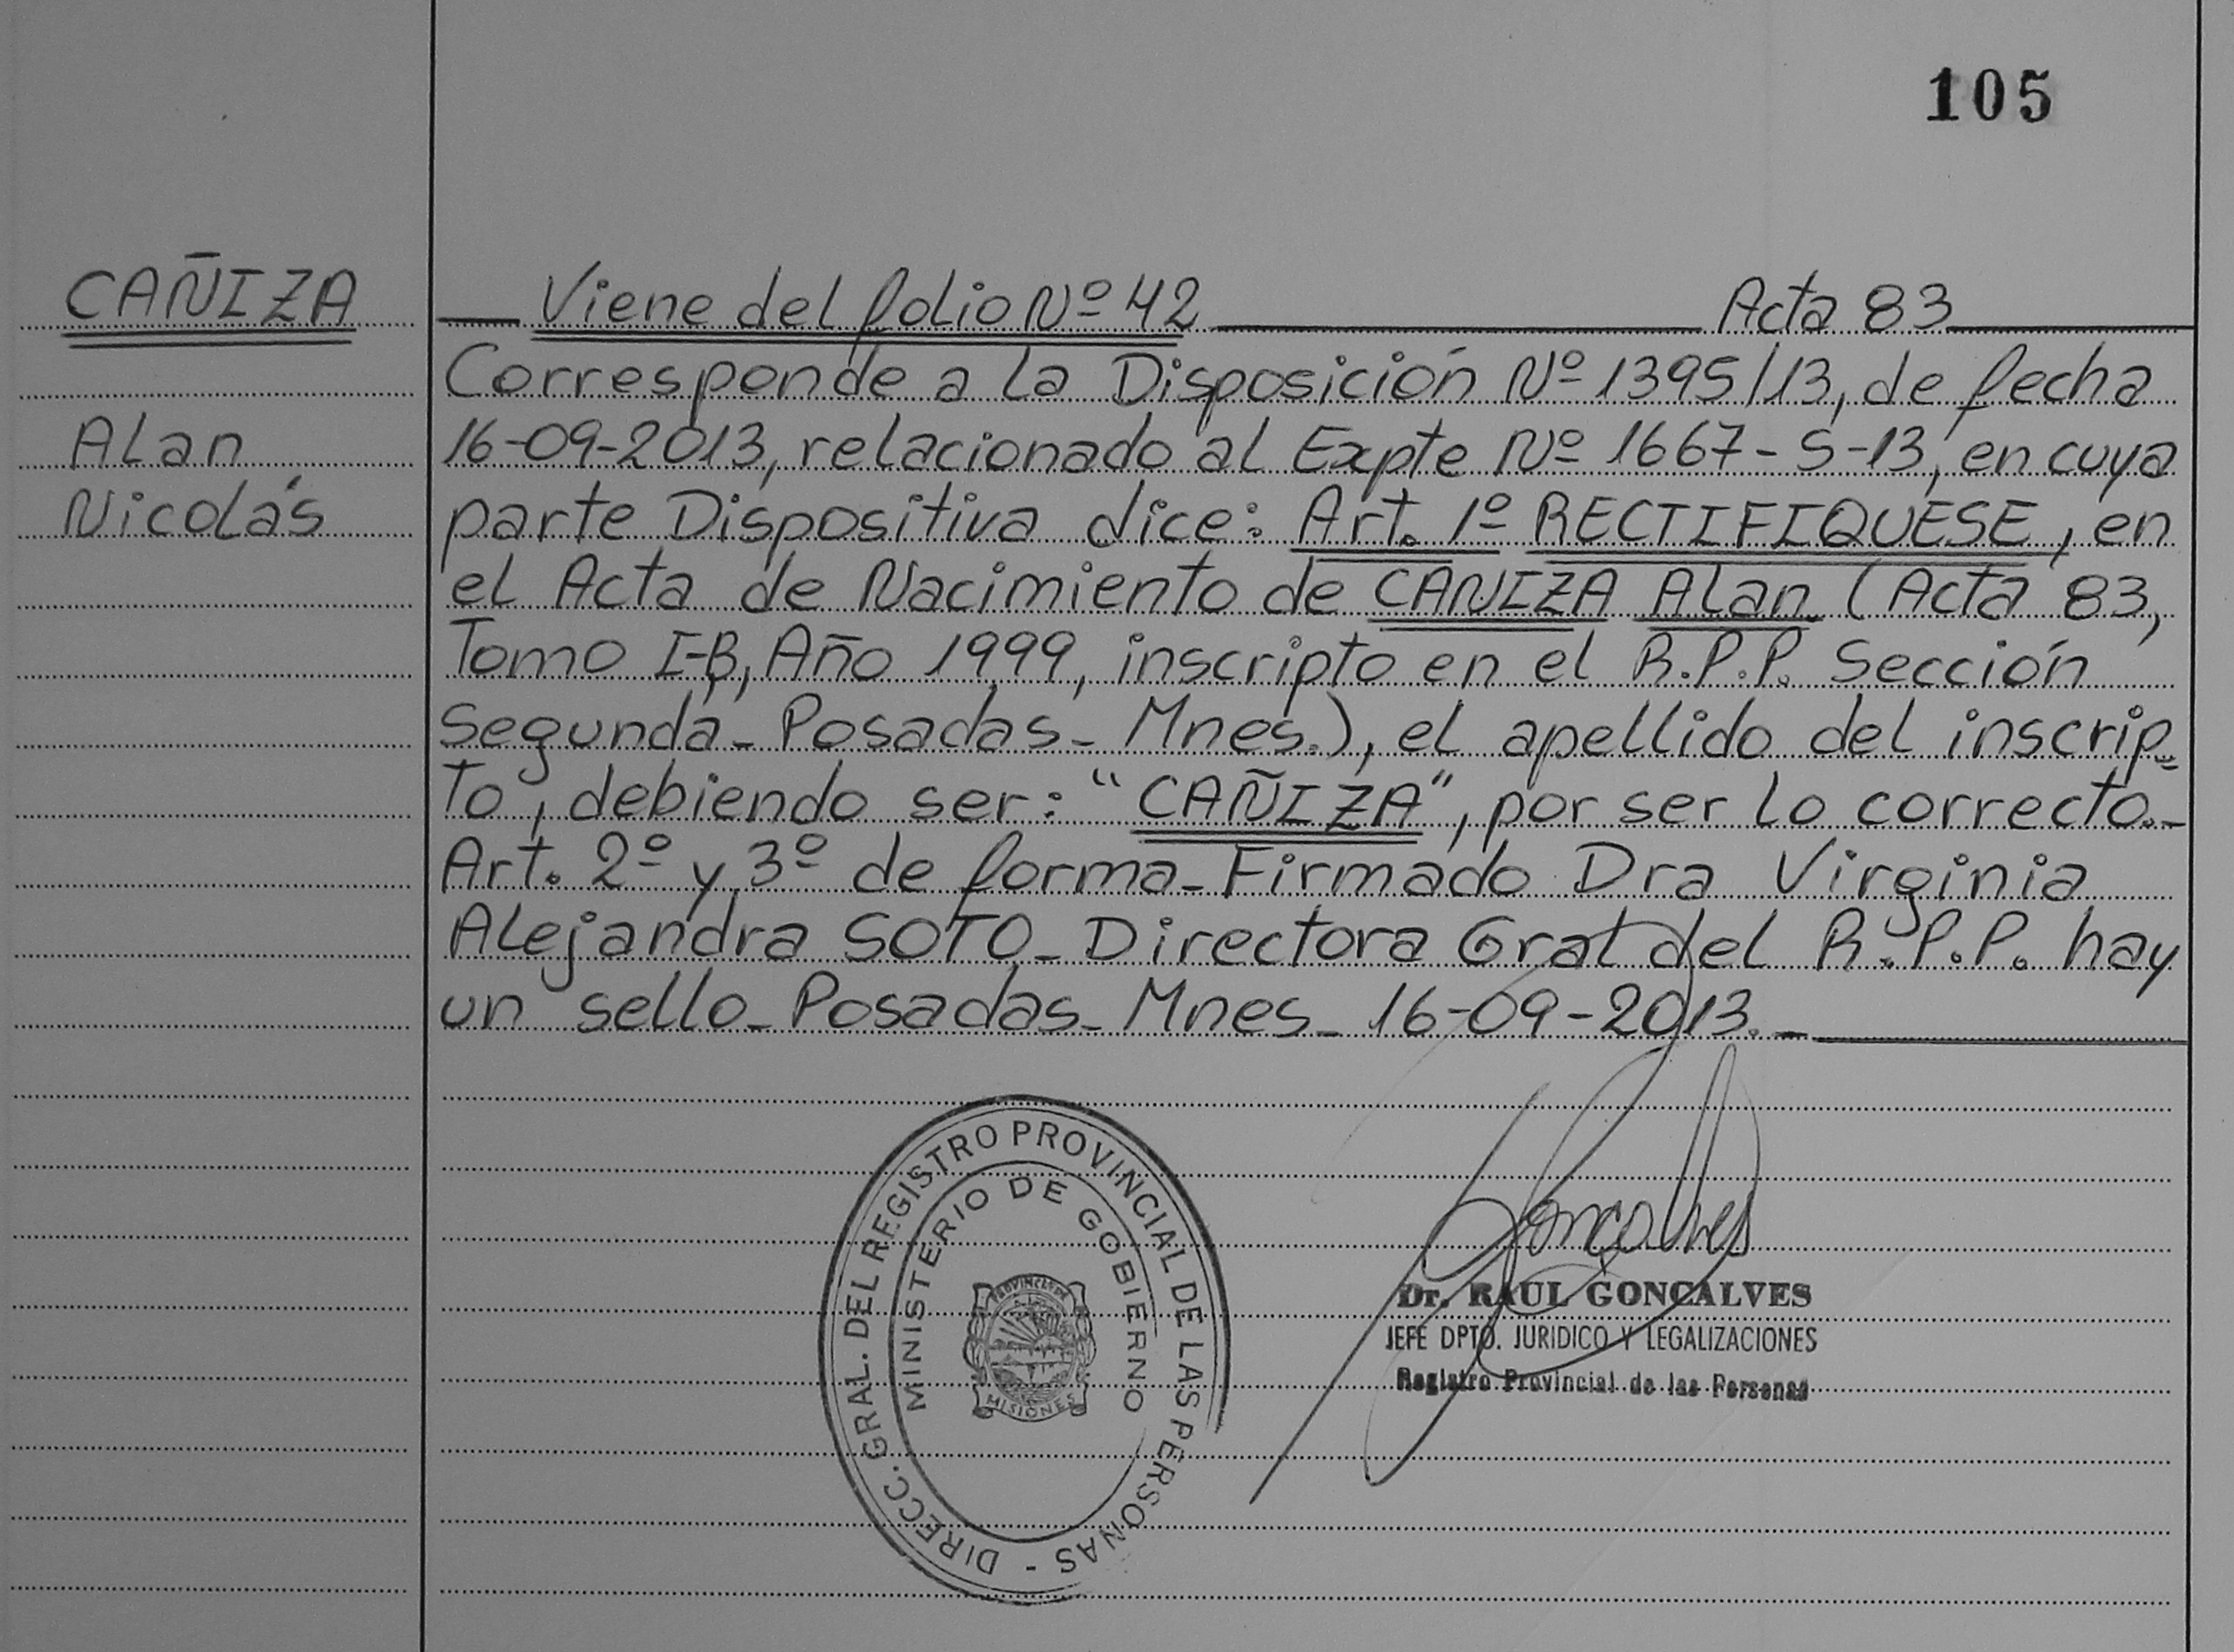 105
CAÑIZA
Alan
Nicolás
Viene del folio Nº 42 Acta 83
Corresponde a la Disposición Nº 1395/13, de fecha
16-09-2013, relacionado al Expte Nº 1667-S-13, en cuya
parte Dispositiva dice: Art. 1º RECTIFIQUESE, en
el Acta de Nacimiento de CANIZA Alan (Acta 83,
Tomo I-B, Año 1999, inscripto en el R.P.P. Sección
Segunda_ Posadas_ Mnes.), el apellido del inscrip=
to, debiendo ser: "CAÑIZA", por ser lo correcto._
Art. 2º y 3º de forma_ Firmado Dra Virginia
Alejandra SOTO_ Directora Gral del R.P.P. hay
un sello_ Posadas_ Mnes_ 16-09-2013._
DIRECC. GRAL. DEL REGISTRO PROVINCIAL DE LAS PERSONAS -
MINISTERIO DE GOBIERNO
PROVINCIA DE
MISIONES
Gonçalves
Dr. RAUL GONÇALVES
JEFE DPTO. JURIDICO Y LEGALIZACIONES
Registro Provincial de las Personas